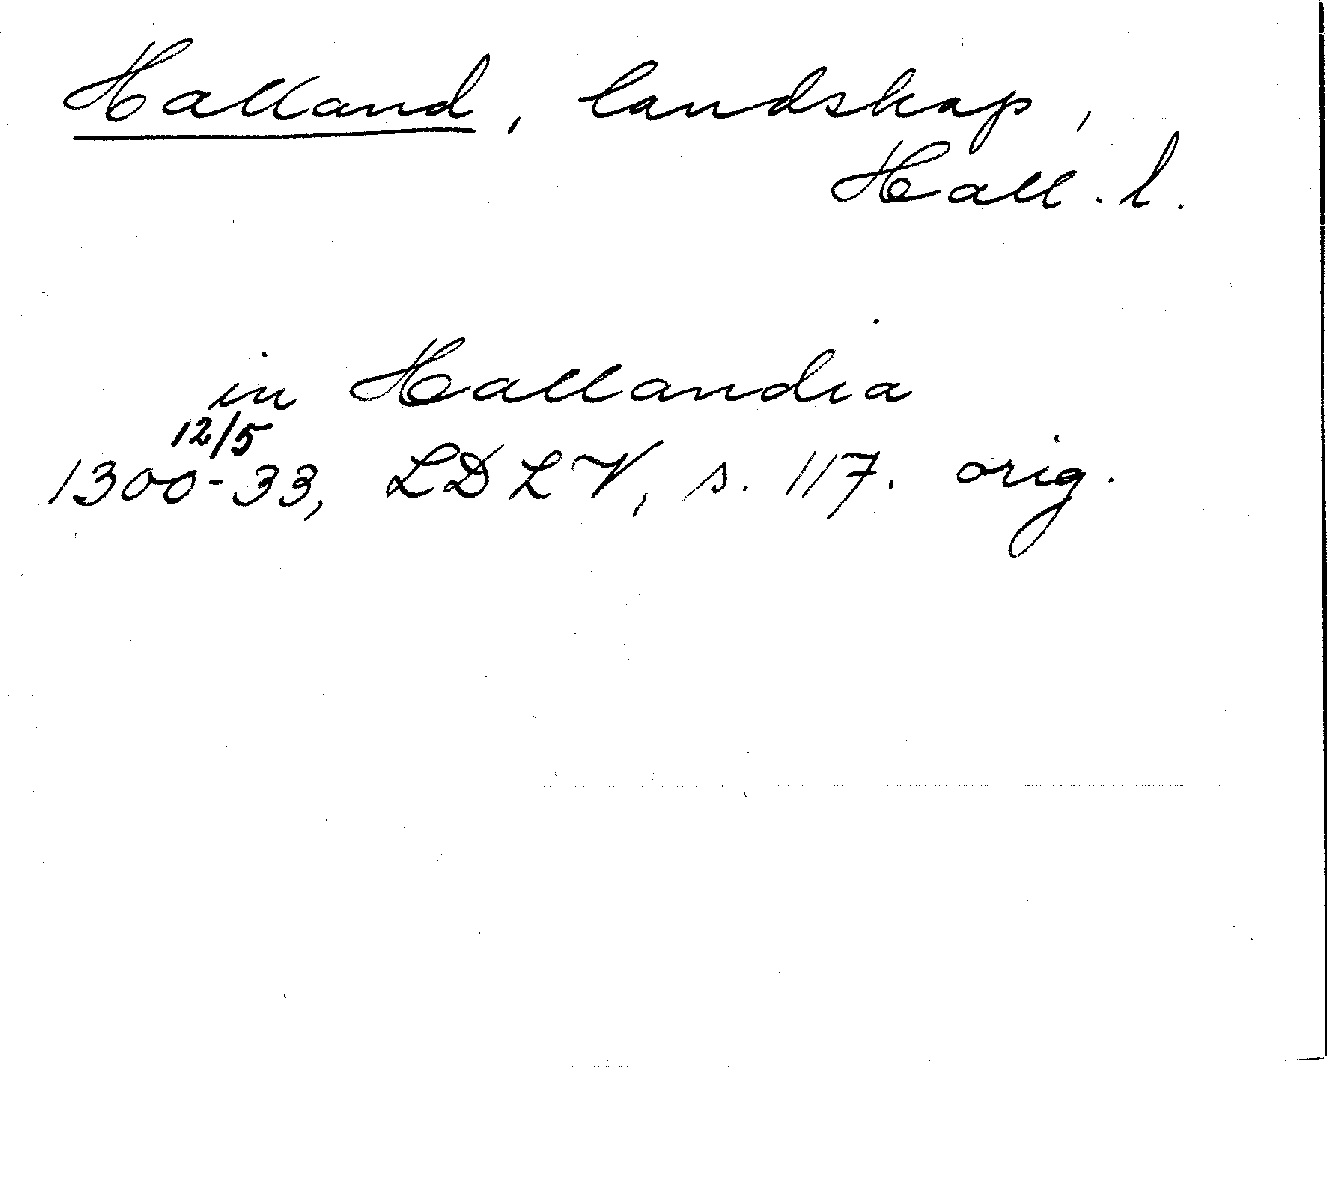 Halland, landskap,
Hall. l.
in Hallandia
12/5
1300-33, LDLV, s. 117. orig.